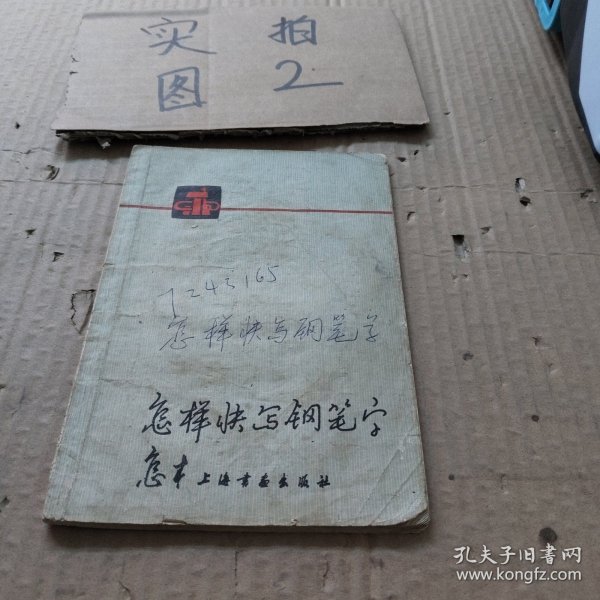 实 拍
图 2
7243165
怎样快写钢笔字
怎样快写钢笔字
怎才 上海书画出版社
孔夫子旧书网
www.kongfz.com